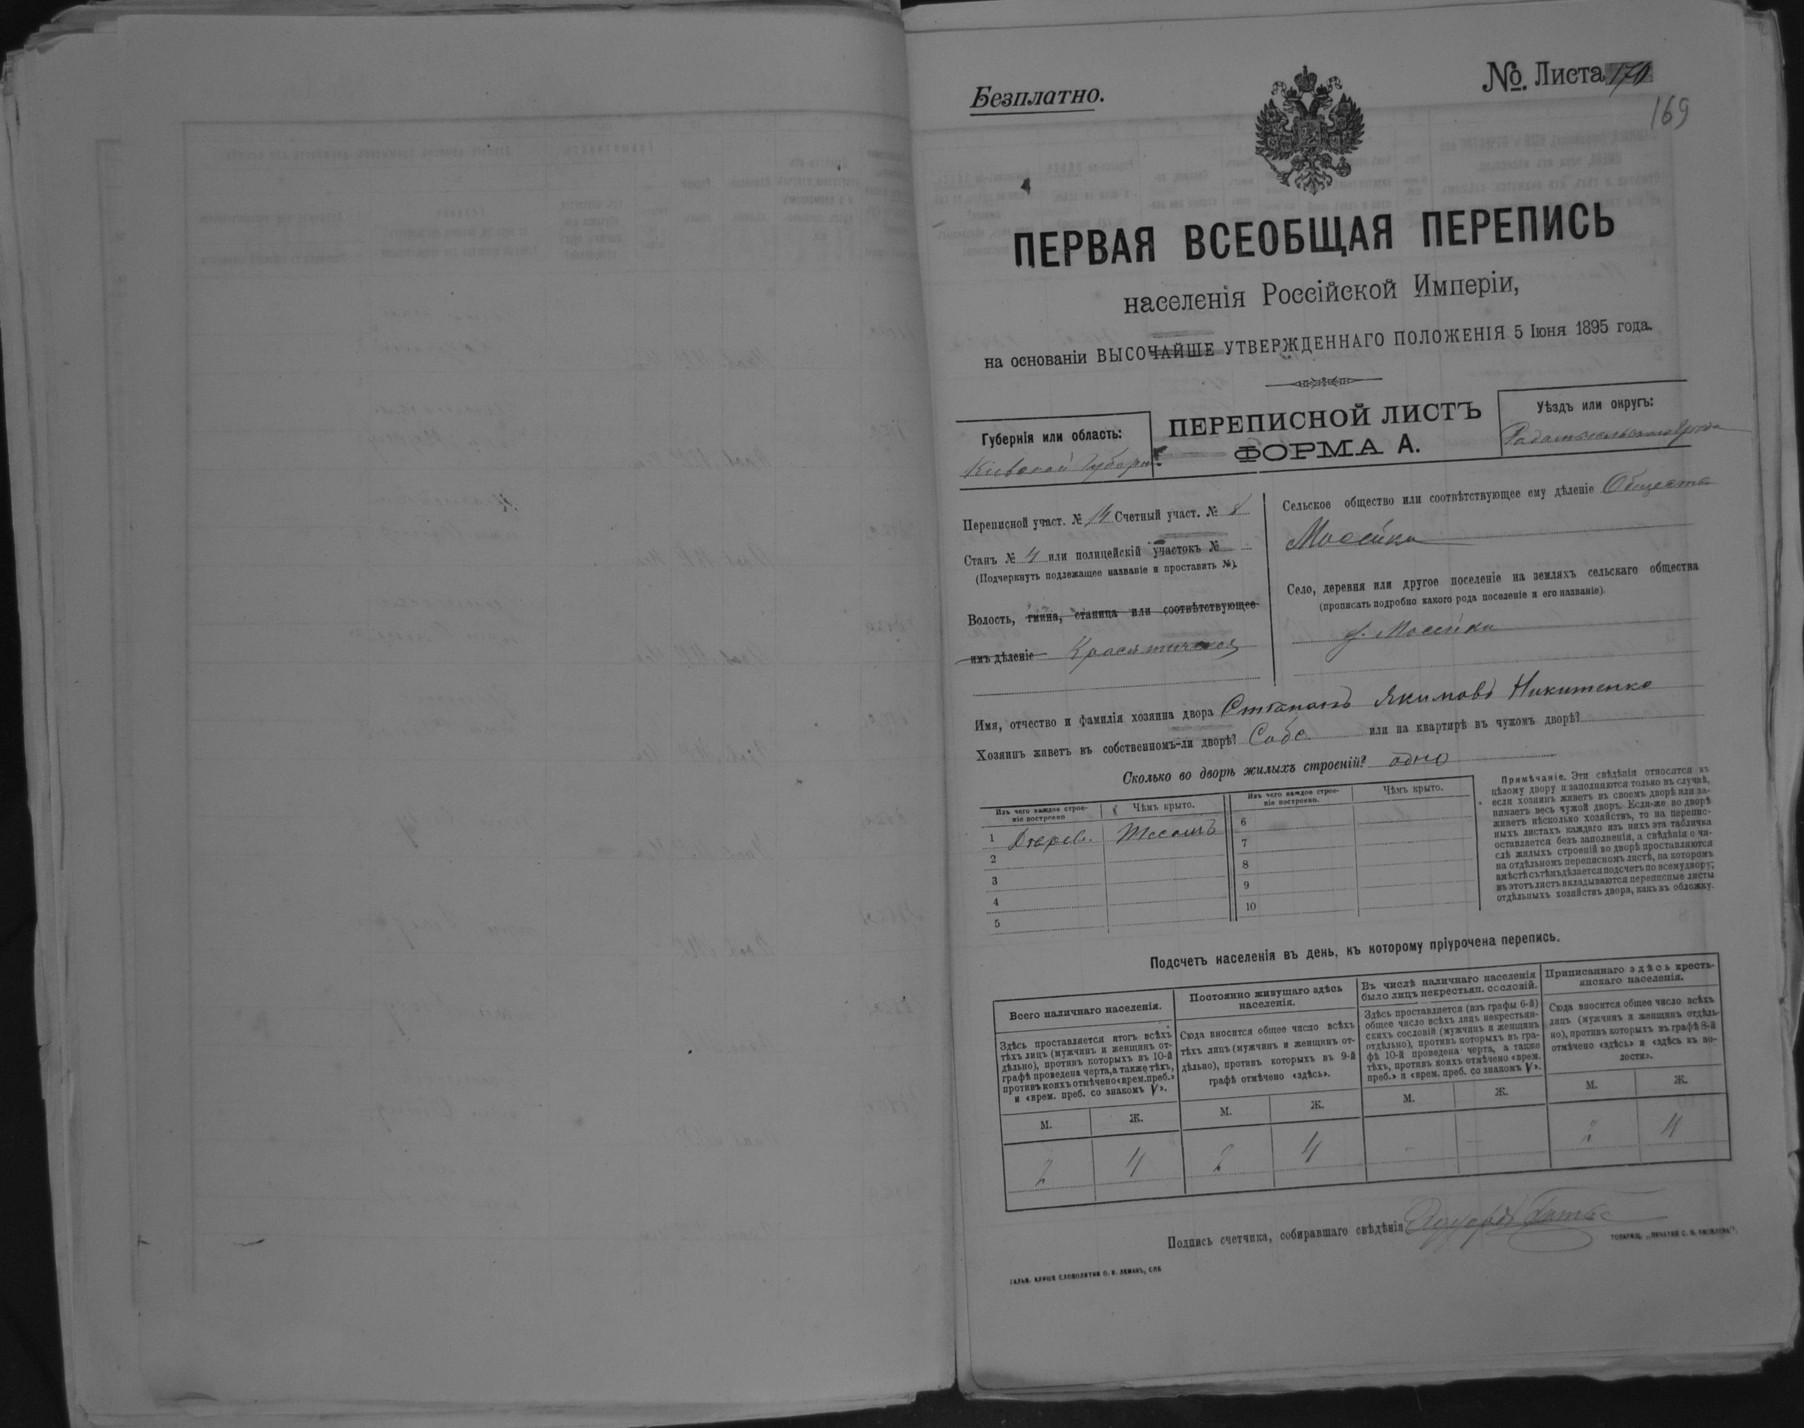 Безплатно.
№. Листа 170
169
ПЕРВАЯ ВСЕОБЩАЯ ПЕРЕПИСЬ
населенія Россійской Имперіи,
на основаніи ВЫСОЧАЙШЕ УТВЕРЖДЕННАГО ПОЛОЖЕНІЯ 5 Іюня 1895 года.
Губернія или область:
Кіевской Губерн.
ПЕРЕПИСНОЙ ЛИСТЪ
ФОРМА А.
Уѣздъ или округъ:
Переписной участ. № 14 Счетный участ. № 8
Станъ № 4 или полицейскій участокъ №
(Подчеркнуть подлежащее названіе и проставить №).
Волость, гмина, станица или соотвѣтствующее
имъ дѣленіе Красятичская
Сельское общество или соотвѣтствующее ему дѣленіе Общество
Мосейки
Село, деревня или другое поселеніе на земляхъ сельскаго общества
(прописать подробно какого рода поселеніе и его названіе).
д. Мосейки
Имя, отчество и фамилія хозяина двора Степанъ Якимовъ Никитенко
Хозяинъ живетъ въ собственномъ-ли дворѣ? Собс. или на квартирѣ въ чужомъ дворѣ?
Сколько во дворѣ жилыхъ строеній? одно
Изъ чего каждое строе-
ніе построено
Чѣмъ крыто.
1 Дерев. Тесомъ
2
3
4
5
Изъ чего каждое строе-
ніе построено.
Чѣмъ крыто.
6
7
8
9
10
Примѣчаніе. Эти свѣдѣнія относятся къ
цѣлому двору и заполняются только въ случаѣ,
если хозяинъ живетъ въ своемъ дворѣ или за-
нимаетъ весь чужой дворъ. Если-же во дворѣ
живетъ нѣсколько хозяйствъ, то на перепис-
ныхъ листахъ каждаго изъ нихъ эта табличка
оставляется безъ заполненія, а свѣдѣнія о чи-
слѣ жилыхъ строеній во дворѣ проставляются
на отдѣльномъ переписномъ листѣ, на которомъ
вмѣстѣ съ тѣмъ дѣлается подсчетъ по всему двору;
въ этотъ листъ вкладываются переписные листы
отдѣльныхъ хозяйствъ двора, какъ въ обложку.
Подсчетъ населенія въ день, къ которому пріурочена перепись.
Всего наличнаго населенія.
Здѣсь проставляется итогъ всѣхъ
тѣхъ лицъ (мужчинъ и женщинъ от-
дѣльно), противъ которыхъ въ 10-й
графѣ проведена черта, а также тѣхъ,
противъ коихъ отмѣчено «врем. преб.»
и «врем. преб. со знакомъ V».
М. Ж.
2 4
Постоянно живущаго здѣсь
населенія.
Сюда вносится общее число всѣхъ
тѣхъ лицъ (мужчинъ и женщинъ от-
дѣльно), противъ которыхъ въ 9-й
графѣ отмѣчено «здѣсь».
М. Ж.
2 4
Въ числѣ наличнаго населенія
было лицъ некрестьян. сословій.
Здѣсь проставляется (изъ графы 6-й)
общее число всѣхъ лицъ некрестьян-
скихъ сословій (мужчинъ и женщинъ
отдѣльно), противъ которыхъ въ гра-
фѣ 10-й проведена черта, а также
тѣхъ, противъ коихъ отмѣчено «врем.
преб.» и «врем. преб. со знакомъ V».
М. Ж.
- -
Приписаннаго здѣсь кресть-
янскаго населенія.
Сюда вносится общее число всѣхъ
лицъ (мужчинъ и женщинъ отдѣль-
но), противъ которыхъ въ графѣ 8-й
отмѣчено «здѣсь» и «здѣсь въ во-
лости».
М. Ж.
2 4
Подпись счетчика, собиравшаго свѣдѣнія
ГАЛЬВ. КЛИШЕ СЛОВОЛИТНИ О. И. ЛЕМАНЪ, СПБ
ТОВАРИЩ. „ПЕЧАТНЯ С. П. ЯКОВЛЕВА".